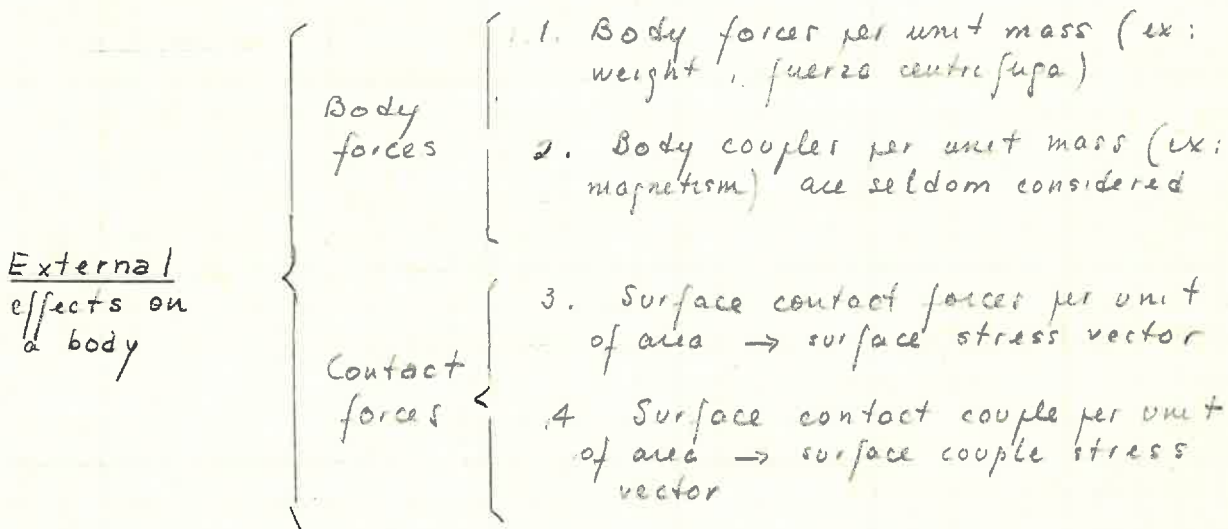 External
effects on
a body
Body
forces
1. Body forces per unit mass (ex:
weight, fuerza centrifuga)
2. Body couples per unit mass (ex:
magnetism) are seldom considered
Contact
forces
3. Surface contact forces per unit
of area → surface stress vector
4 Surface contact couple per unit
of area → surface couple stress
vector